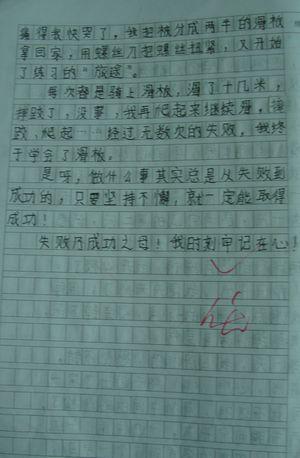 痛得我快哭了，我把被分成两半的滑板
拿回家，用螺丝刀把螺丝拯紧，又开始
了练习的“旅途”。
每次都是骑上滑板，滑了十几米，
摔跤了，没事，我再爬起来继续滑，摔
跤，爬起……经过无数次的失败，我终
于学会了滑板。
是呀，做什么事其实总是从失败到
成功的，只要坚持不懈，就一定能取得
成功！
失败乃成功之母！我时刻牢记在心！